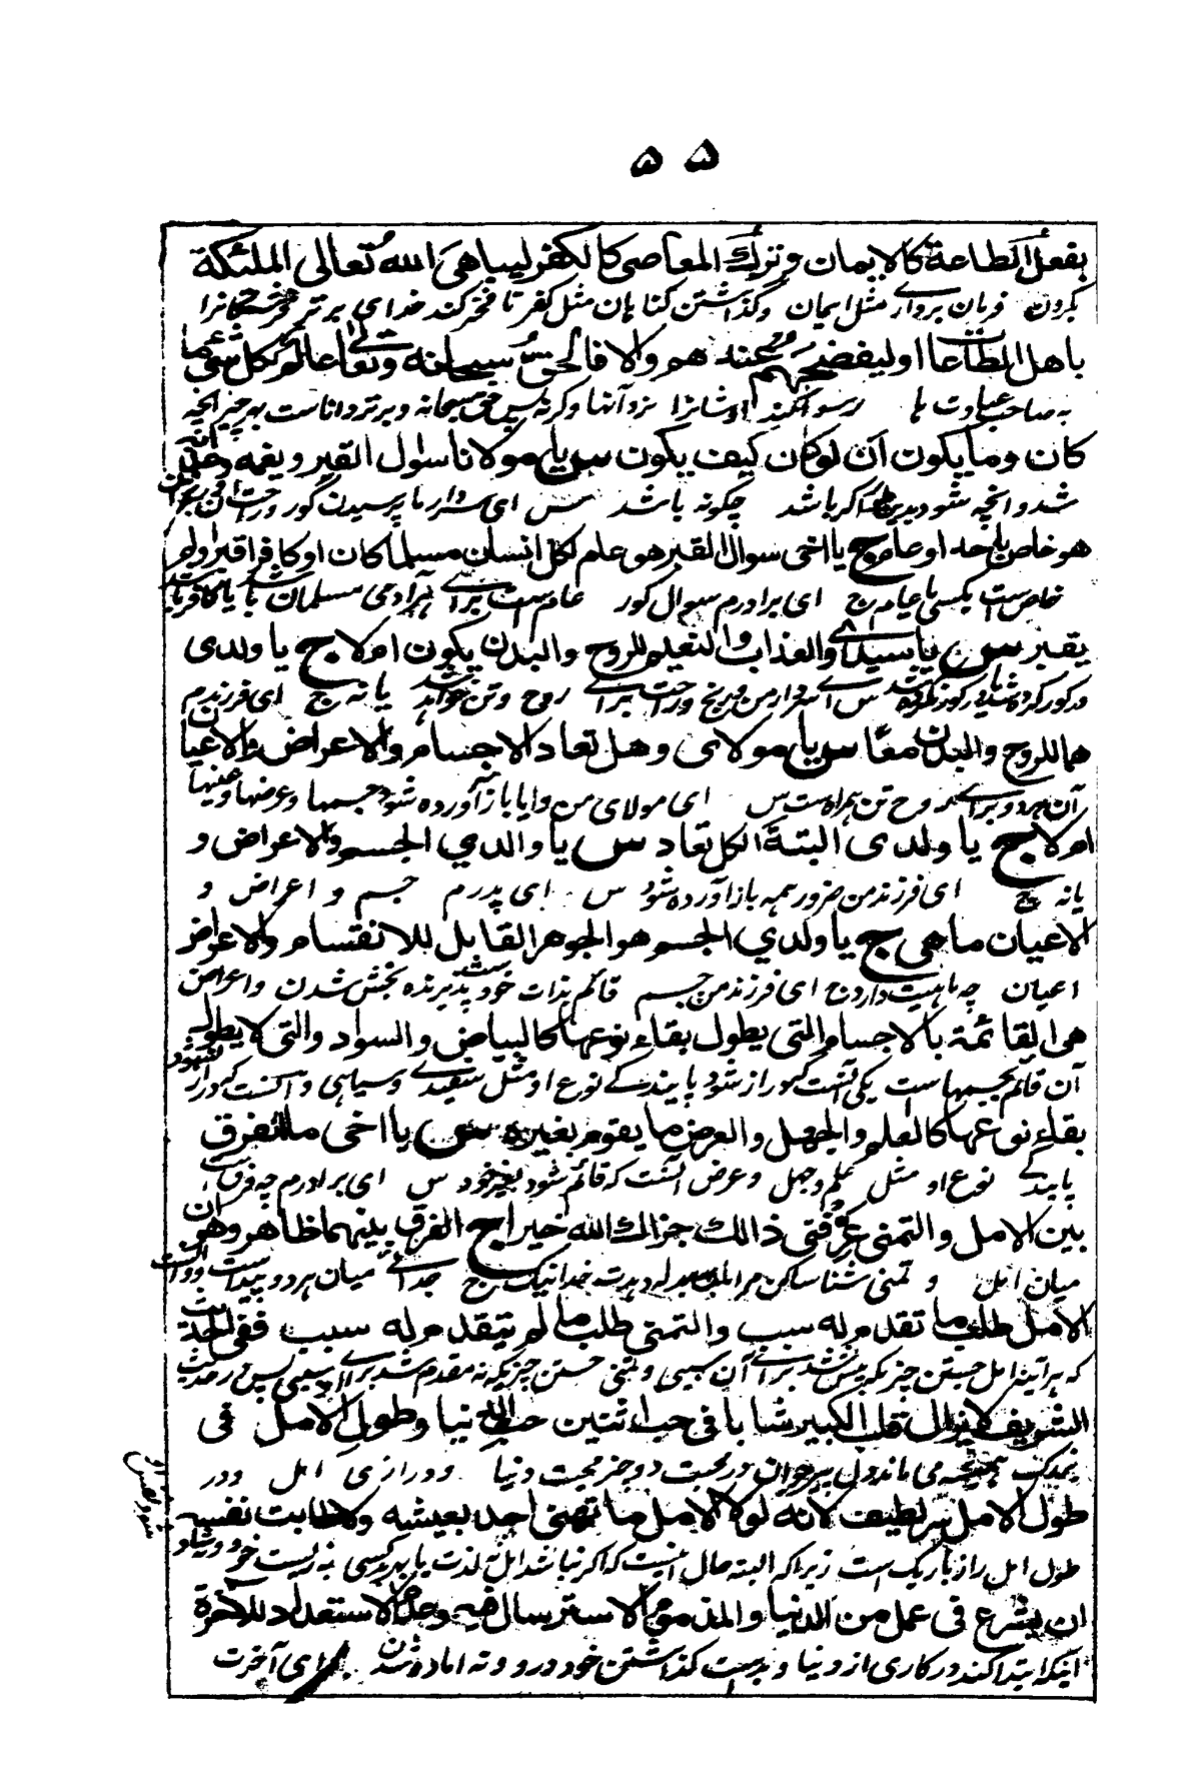 ۵ ۵
بفعل الطاعة كالايمان وترك المعاصى كالكفر ليباهى الله تعالى الملئكة
بكردن فرمان برداری مثل ایمان وگذاشتن گناهان مثل کفر تا فخر کند خدای برتر
باهل الطاعات اوليفضحهم عندهم والا فالحق سبحانه وتعالى عالم بكل شئ مما
به صاحب عبادت ها رسوا کند اوشانرا نزد آنها وگرنه پس حق سبحانه وبرتر داناست بهر چیز انچه
كان وما يكون ان لو كان كيف يكون س يا مولانا سوال القبر ونعمه
شد وانچه شود اگر باشد چگونه باشد س ای سردار ما پرسیدن گور وراحت
هو خاص باحد او عام ج يا اخى سوال القبر هو عام لكل انسان مسلما كان او كافرا قبر او لم
خاص است بکسی یا عام ج ای برادرم سوال گور عام است برای هر آدمی مسلمان باشد یا کافر
يقبر س يا سيدى والعذاب والنعيم للروح والبدن يكون ام لا ج يا ولدى
س ای سردار من ورنج وراحت برای روح وتن خواهد شد یا نه ج ای فرزندم
هما للروح والبدن معًا س يا مولاى وهل تعاد الاجسام والاعراض والاعيان
آن هردو برای روح تن همراه ست س ای مولای من وایا باز آورده شود جسمها وعرضها وعینها
ام لا ج يا ولدى البتة الكل تعاد س يا والدي الجسم والاعراض و
یا نه ج ای فرزند من ضرور همه باز آورده شود س ای پدرم جسم و اعراض و
الاعيان ما هى ج يا ولدي الجسم هو الجوهر القابل للانقسام والاعراض
اعیان چه ماهیت دارد ج ای فرزند من جسم قائم بذات خود ست پذیرنده بخش شدن واعراض
هى القائمة بالاجسام التى يطول بقاء نوعها كالبياض والسواد والتى لا يطول
آن قائم بجسمهاست یکی آنست که دراز شود پایندگی نوع او مثل سفیدی وسیاهی وآنست که دراز نشود
بقاء نوعها كالعلم والجهل والعرض ما يقوم بغيره س يا اخى ما الفرق
پایندگی نوع او مثل علم وجهل وعرض آنست که قائم شود بغیر خود س ای برادرم چه فرق ست
بين الامل والتمنى عرفنى ذالك جزاك الله خيرا ج الفرق بينهما ظاهر وهو ان
میان امل و تمنی شناسا کن مرا بدهدت خدا نیک ج جدائی میان هردو پیداست
الامل طلب ما تقدم له سبب والتمنى طلب ما لم يتقدم له سبب ففى الحديث
که هر آینه امل جستن چیزیکه پیش شد برای آن سببی وتمنی جستن چیزیکه نه مقدم شد برای او سببی پس در حدیث
الشريف لا يزال قلب الكبير شابا فى حب اثنين حب الدنيا وطول الامل فى
همیشه می ماند دل پیر جوان در محبت دو چیز محبت دنیا ودرازی امل ودر
طول الامل سر لطيف لانه لولا الامل ما تهنى احد بعيشه ولا طابت نفسه
طول امل راز باریک است زیرا که البته حال اینست که اگر نباشد امل نه لذت یابد کسی بزیست خود
ان يشرع فى عمل من الدنيا والمذموم الاسترسال فيه وعدم الاستعداد للآخرة
اینکه ابتدا کند در کاری از دنیا و بدست گذاشتن خود درو و نه اماده شدن برای آخرت